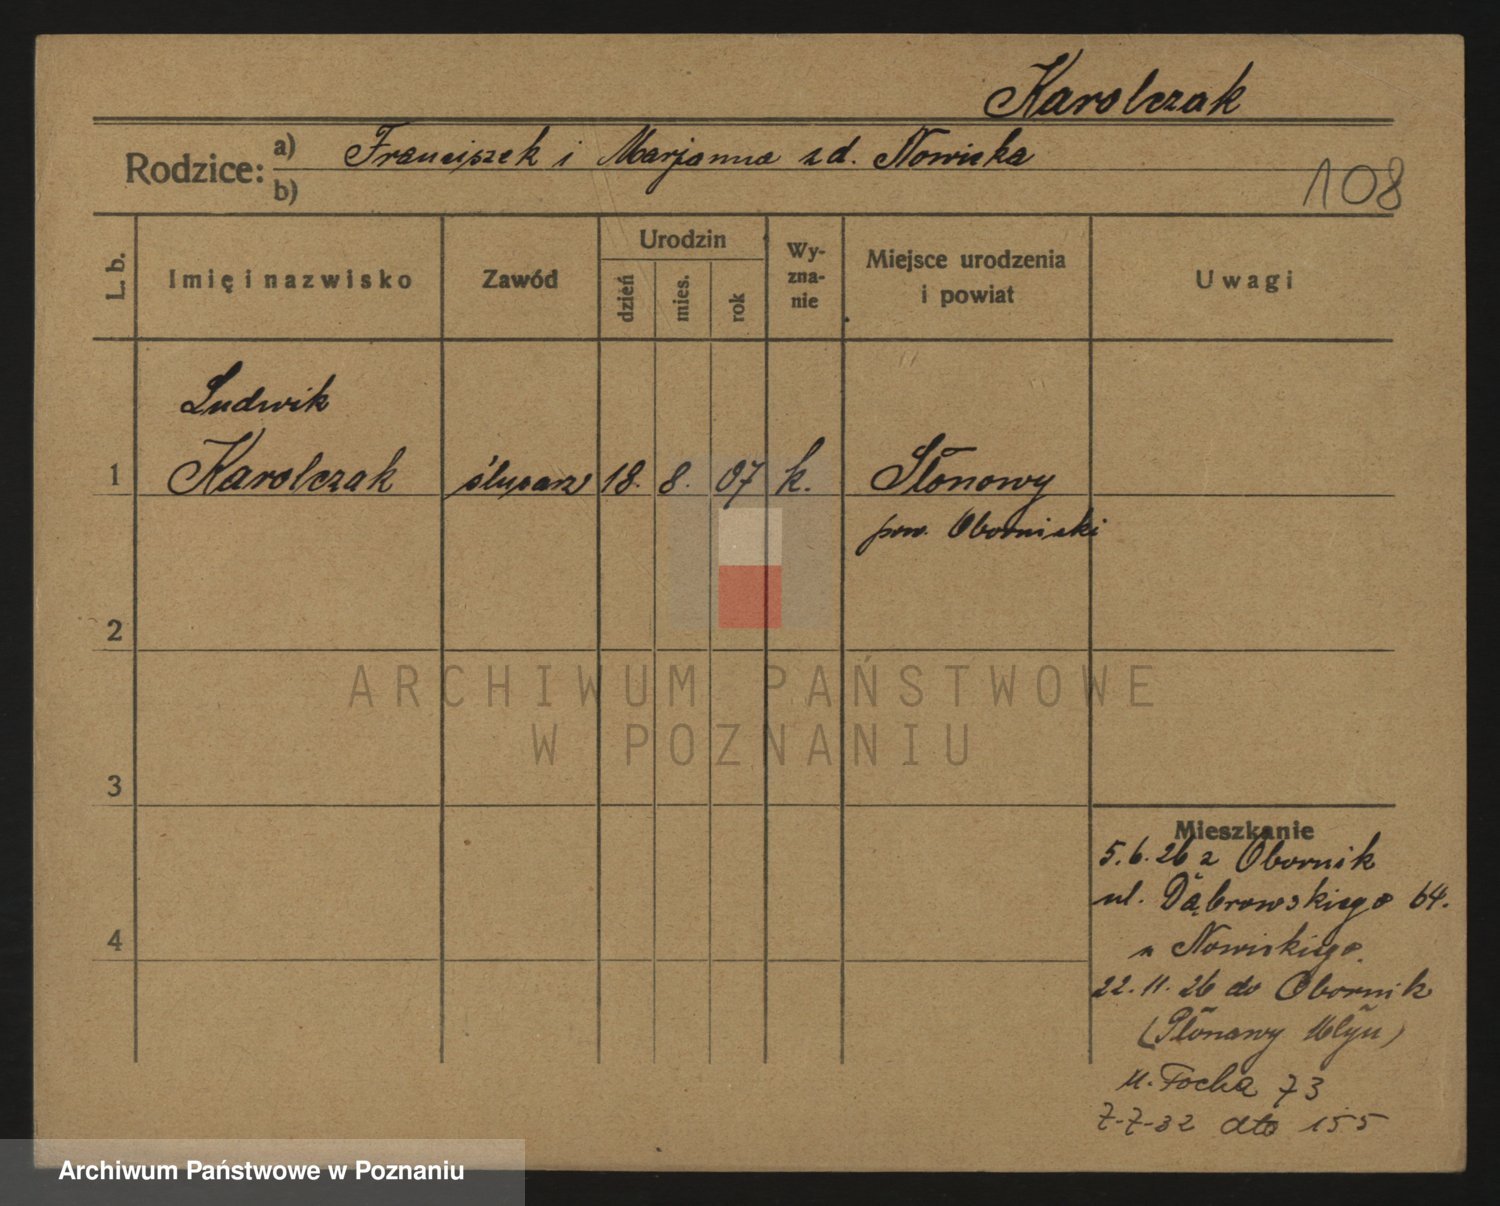 Karolczak
Rodzice: a) Franciszek i Marjanna z d. Nowicka
b)
108
L. b.
Imię i nazwisko
Zawód
Urodzin
dzień
mies.
rok
Wy-
zna-
nie
Miejsce urodzenia
i powiat
Uwagi
Ludwik
1 Karolczak ślusarz 18. 8. 07 k. Słonowy
pow. Obornicki
2
3
4
Mieszkanie
5.6.26 z Obornik
ul. Dąbrowskiego 64.
u Nowickiego.
22.11.26 do Obornik
(Słonawy Młyn)
M. Focha 73
7-7-32 dto 155
ARCHIWUM PAŃSTWOWE
W POZNANIU
Archiwum Państwowe w Poznaniu